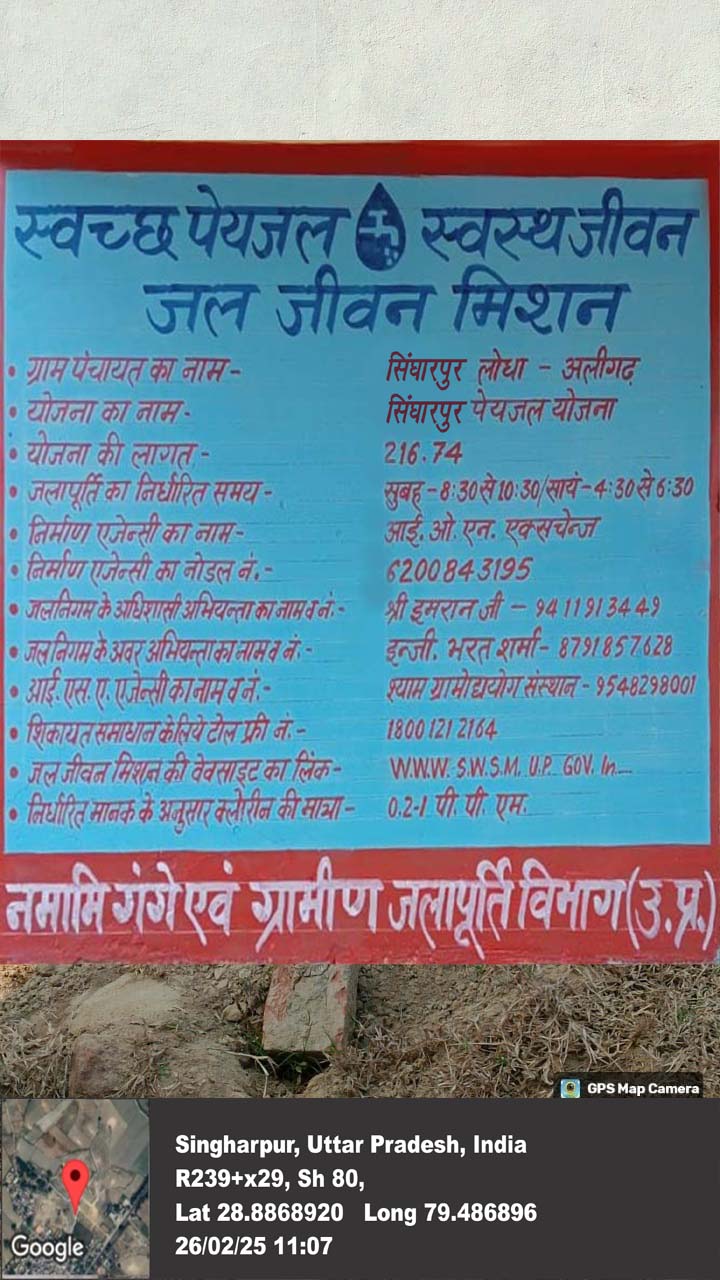 स्वच्छ पेयजल स्वस्थ जीवन
जल जीवन मिशन
• ग्राम पंचायत का नाम - सिंघारपुर लोधा - अलीगढ़
• योजना का नाम - सिंघारपुर पेयजल योजना
• योजना की लागत - 216.74
• जलापूर्ति का निर्धारित समय - सुबह - 8:30 से 10:30/सायं - 4:30 से 6:30
• निर्माण एजेन्सी का नाम - आई. ओ. एन. एक्सचेन्ज
• निर्माण एजेन्सी का नोडल नं. - 6200843195
• जलनिगम के अधिशासी अभियन्ता का नाम व नं. - श्री इमरान जी - 9411913449
• जलनिगम के अवर अभियन्ता का नाम व नं. - इन्जी. भरत शर्मा - 8791857628
• आई. एस. ए. एजेन्सी का नाम व नं. - श्याम ग्रामोद्ययोग संस्थान - 9548298001
• शिकायत समाधान के लिये टोल फ्री नं. - 1800 121 2164
• जल जीवन मिशन की वेवसाइट का लिंक - W.W.W. S.W.S.M. U.P. GOV. In
• निर्धारित मानक के अनुसार क्लोरीन की मात्रा - 0.2-1 पी. पी. एम.
नमामि गंगे एवं ग्रामीण जलापूर्ति विभाग (उ.प्र.)
GPS Map Camera
Singharpur, Uttar Pradesh, India
R239+x29, Sh 80,
Lat 28.8868920 Long 79.486896
26/02/25 11:07
Google